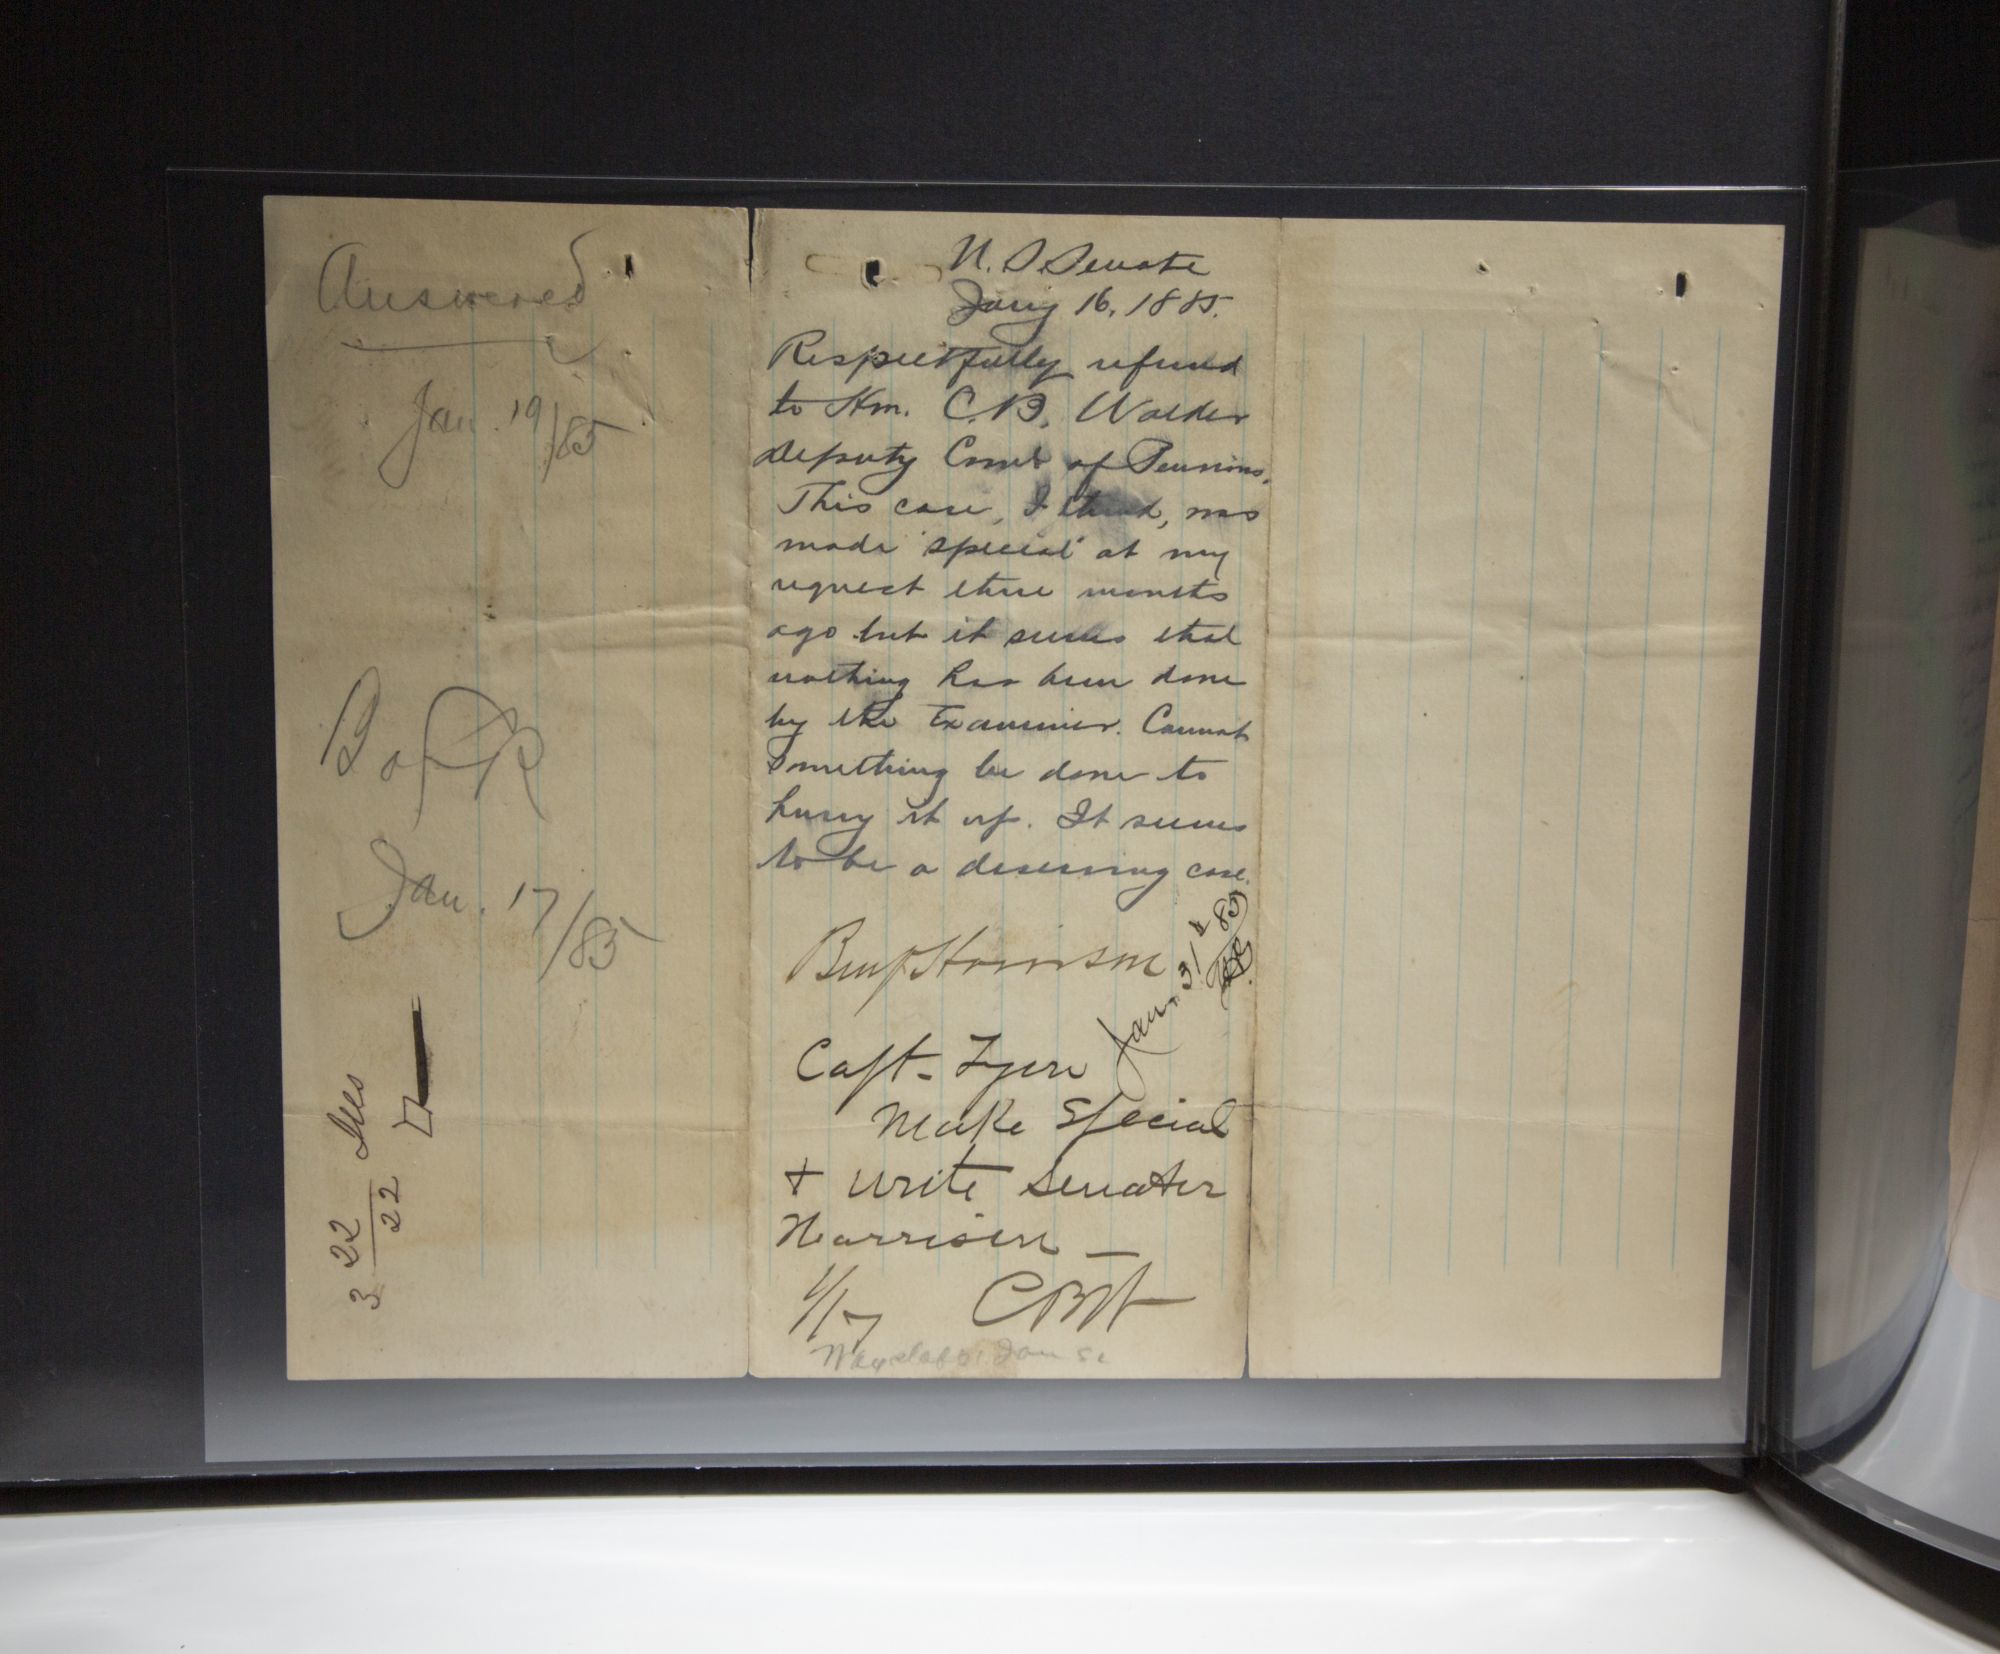 Answered
Jan. 19/85
B of R
Jan. 17/85
3 22
22
U. S. Senate
Jany 16, 1885.
Respectfully referred
to Hon. C.B. Walker
Deputy Comr of Pensions.
This case, I think, was
made "special" at my
request three months
ago but it seems that
nothing has been done
by the Examiner. Cannot
something be done to
hurry it up. It seems
to be a deserving case.
Benj Harrison
Jan. 31st 85
Capt.
Make Special
+ write Senator
Harrison —
1/17 CBW